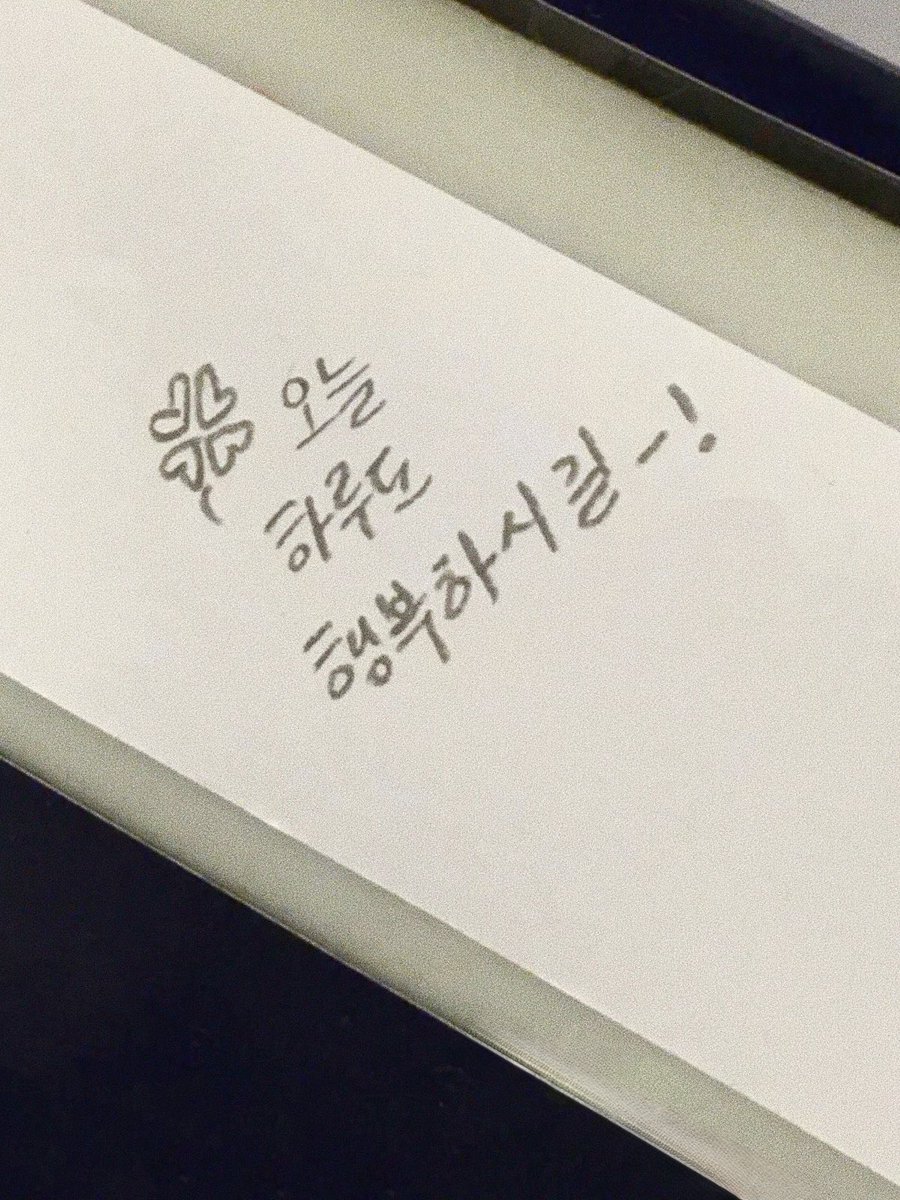 오늘
하루도
행복하시길-!